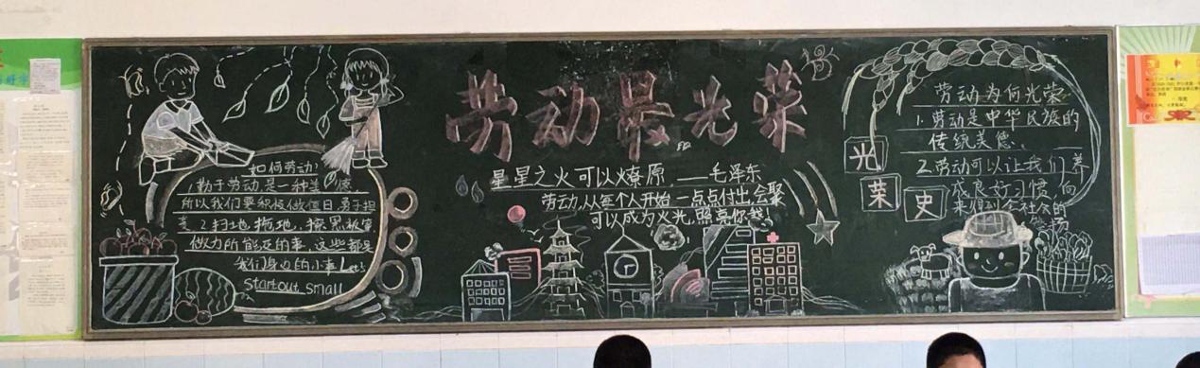 劳动最光荣
星星之火可以燎原——毛泽东
劳动,从每个人开始一点点付出,会聚
可以成为火光,照亮你我
如何劳动?
1.勤于劳动是一种美德
所以我们要积极做值日,勇于担
责2.扫地,拖地,擦黑板等
做力所能及的事,这些都是
我们身边的小事Let's
start out small
光
荣
史
劳动为何光荣
1.劳动是中华民族的
传统美德、
2.劳动可以让我们养
成良好习惯,向